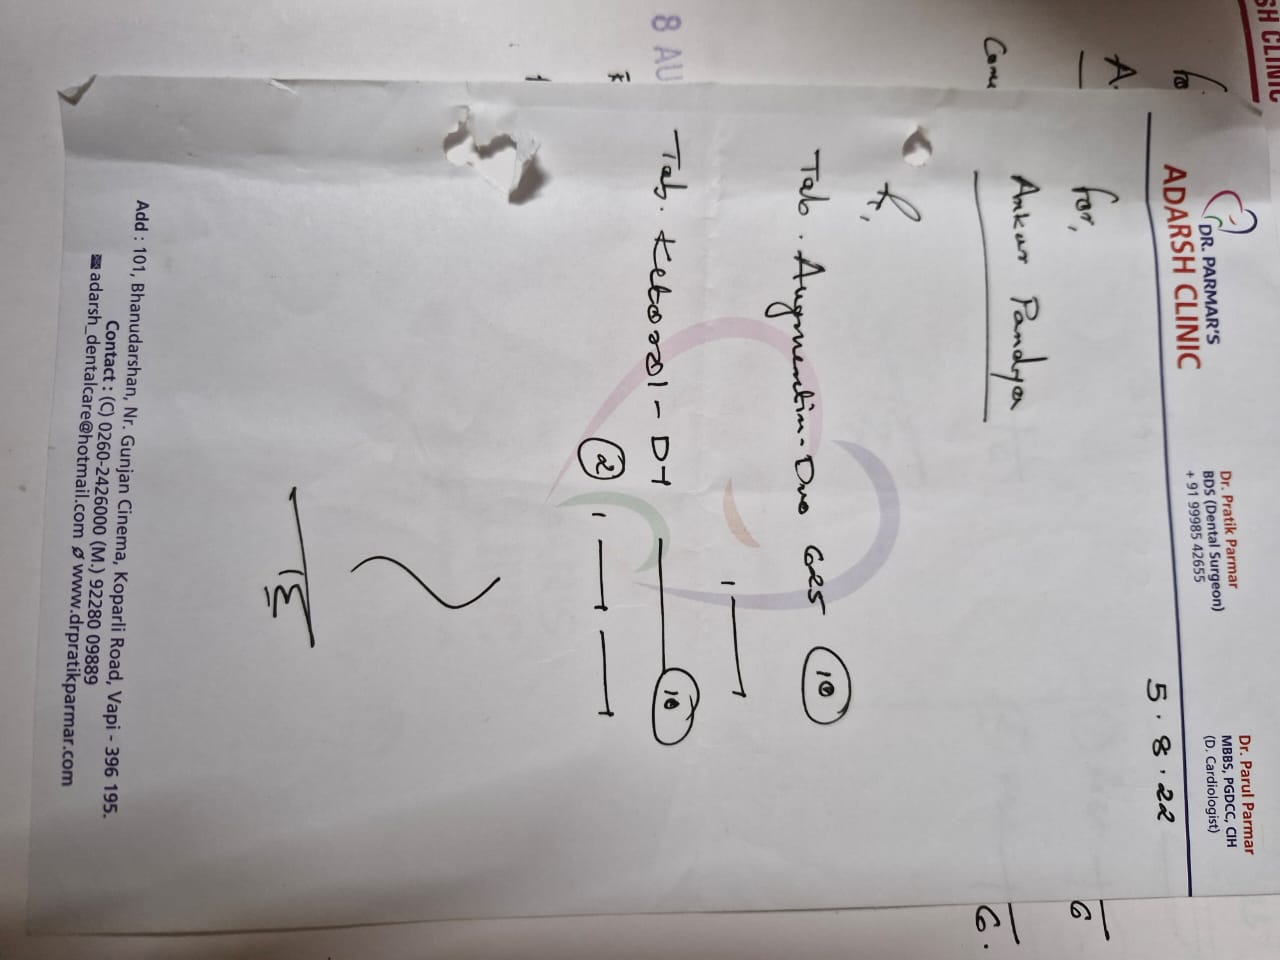 SH CLINIC
for
A.
Come
8 AU
DR. PARMAR'S
ADARSH CLINIC
Dr. Pratik Parmar
BDS (Dental Surgeon)
+ 91 99985 42655
Dr. Parul Parmar
MBBS, PGDCC, CIH
(D. Cardiologist)
5.8.22
for,
Ankur Pandya
Tab. Augmentin-Duo 625 (10)
Tab. Ketorol-DT (10)
(2)
Add : 101, Bhanudarshan, Nr. Gunjan Cinema, Koparli Road, Vapi - 396 195.
Contact : (C) 0260-2426000 (M.) 92280 09889
✉ adarsh_dentalcare@hotmail.com www.drpratikparmar.com